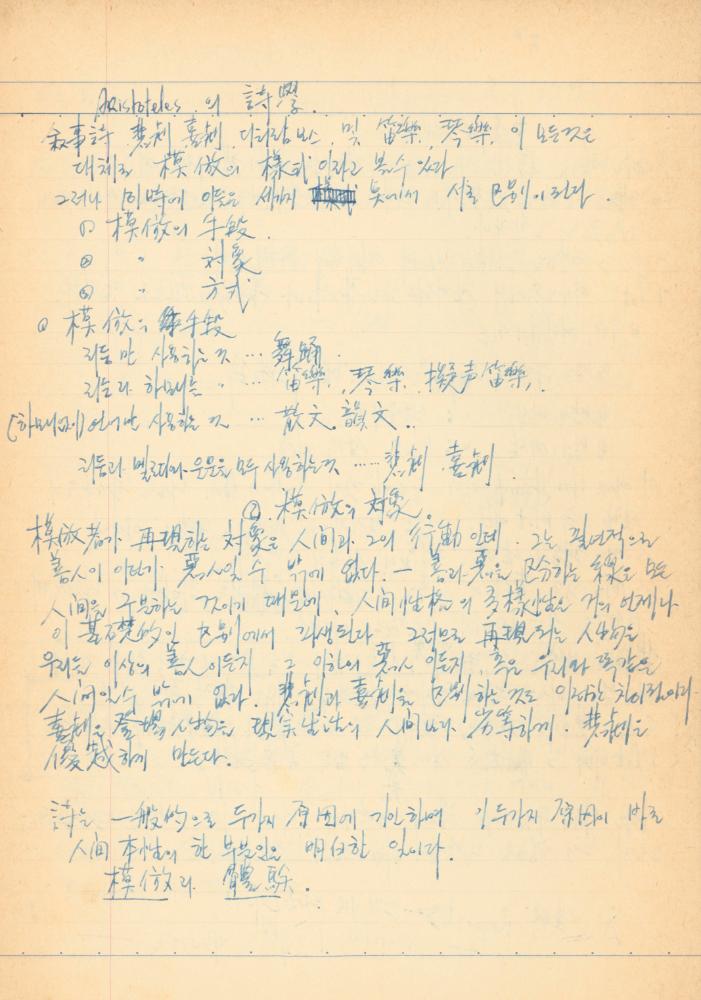 Aristoteles 의 詩學.
叙事詩 悲劇, 喜劇, 디티람보스, 및 笛樂, 琴樂, 이 모든것은
대체로 模倣의 樣式이라고 볼수 있다
그러나 同時에 이들은 세가지 점에서 서로 区別이 된다.
① 模倣의 手段.
② 〃 対象
③ 〃 方式
① 模倣의 手段
리듬만 사용하는 것 … 舞踊.
리듬과 하모니를 〃 … 笛樂, 琴樂, 擬声笛樂,
(하모니없이) 언어만 사용하는 것 … 散文, 韻文..
리듬과 멜로디와 운문을 모두 사용하는것 …… 悲劇 喜劇.
②. 模倣의 対象.
模倣者가 再現하는 対象은 人間과 그의 行動인데. 그는 필연적으로
善人이 이던가 惡人일 수 밖에 없다. — 善과 惡을 区分하는 線은 모든
人間을 구분하는 것이기 때문에, 人間性格의 多樣性은 거의 언제나
이 基礎的인 区別에서 파생된다. 그러므로 再現되는 人物은
우리들 이상의 善人이든지, 그 이하의 惡人이든지, 혹은 우리와 똑같은
人間일수 밖에 없다. 悲劇과 喜劇을 区別하는 것도 이러한 차이점이다.
喜劇은 登場人物을 現実生活의 人間보다 劣等하게. 悲劇은
優越하게 만든다.
詩는 一般的으로 두가지 原因에 기인하며 그 두가지 原因이 바로
人間本性의 한 부분임은 明白한 일이다.
模倣과 體驗.